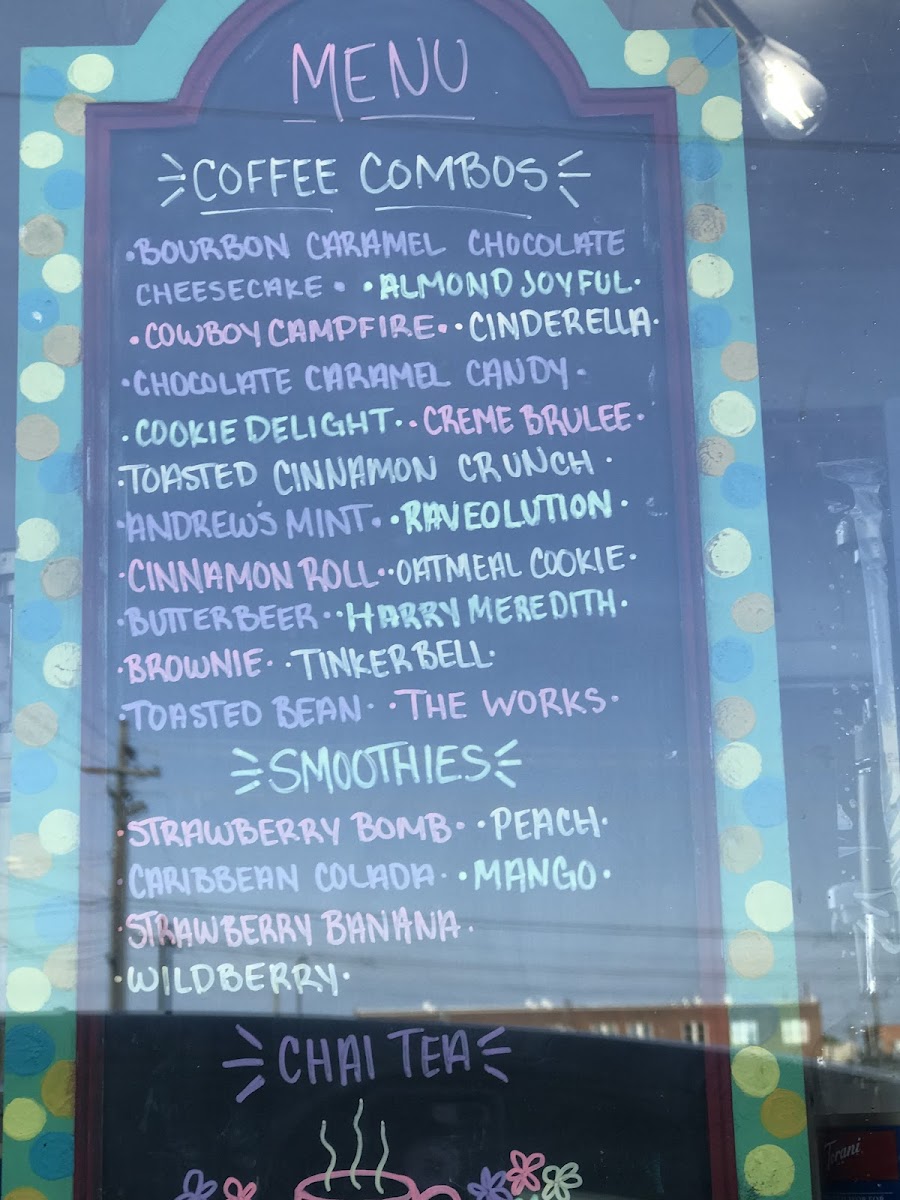 MENU
COFFEE COMBOS
•BOURBON CARAMEL CHOCOLATE
CHEESECAKE• •ALMOND JOYFUL•
•COWBOY CAMPFIRE• •CINDERELLA•
•CHOCOLATE CARAMEL CANDY•
•COOKIE DELIGHT• •CREME BRULEE•
•TOASTED CINNAMON CRUNCH•
•ANDREW'S MINT• •RAVEOLUTION•
•CINNAMON ROLL• •OATMEAL COOKIE•
•BUTTERBEER• •HARRY MEREDITH•
•BROWNIE• •TINKERBELL•
•TOASTED BEAN• •THE WORKS•
SMOOTHIES
•STRAWBERRY BOMB• •PEACH•
•CARIBBEAN COLADA• •MANGO•
•STRAWBERRY BANANA•
•WILDBERRY•
CHAI TEA
Torani